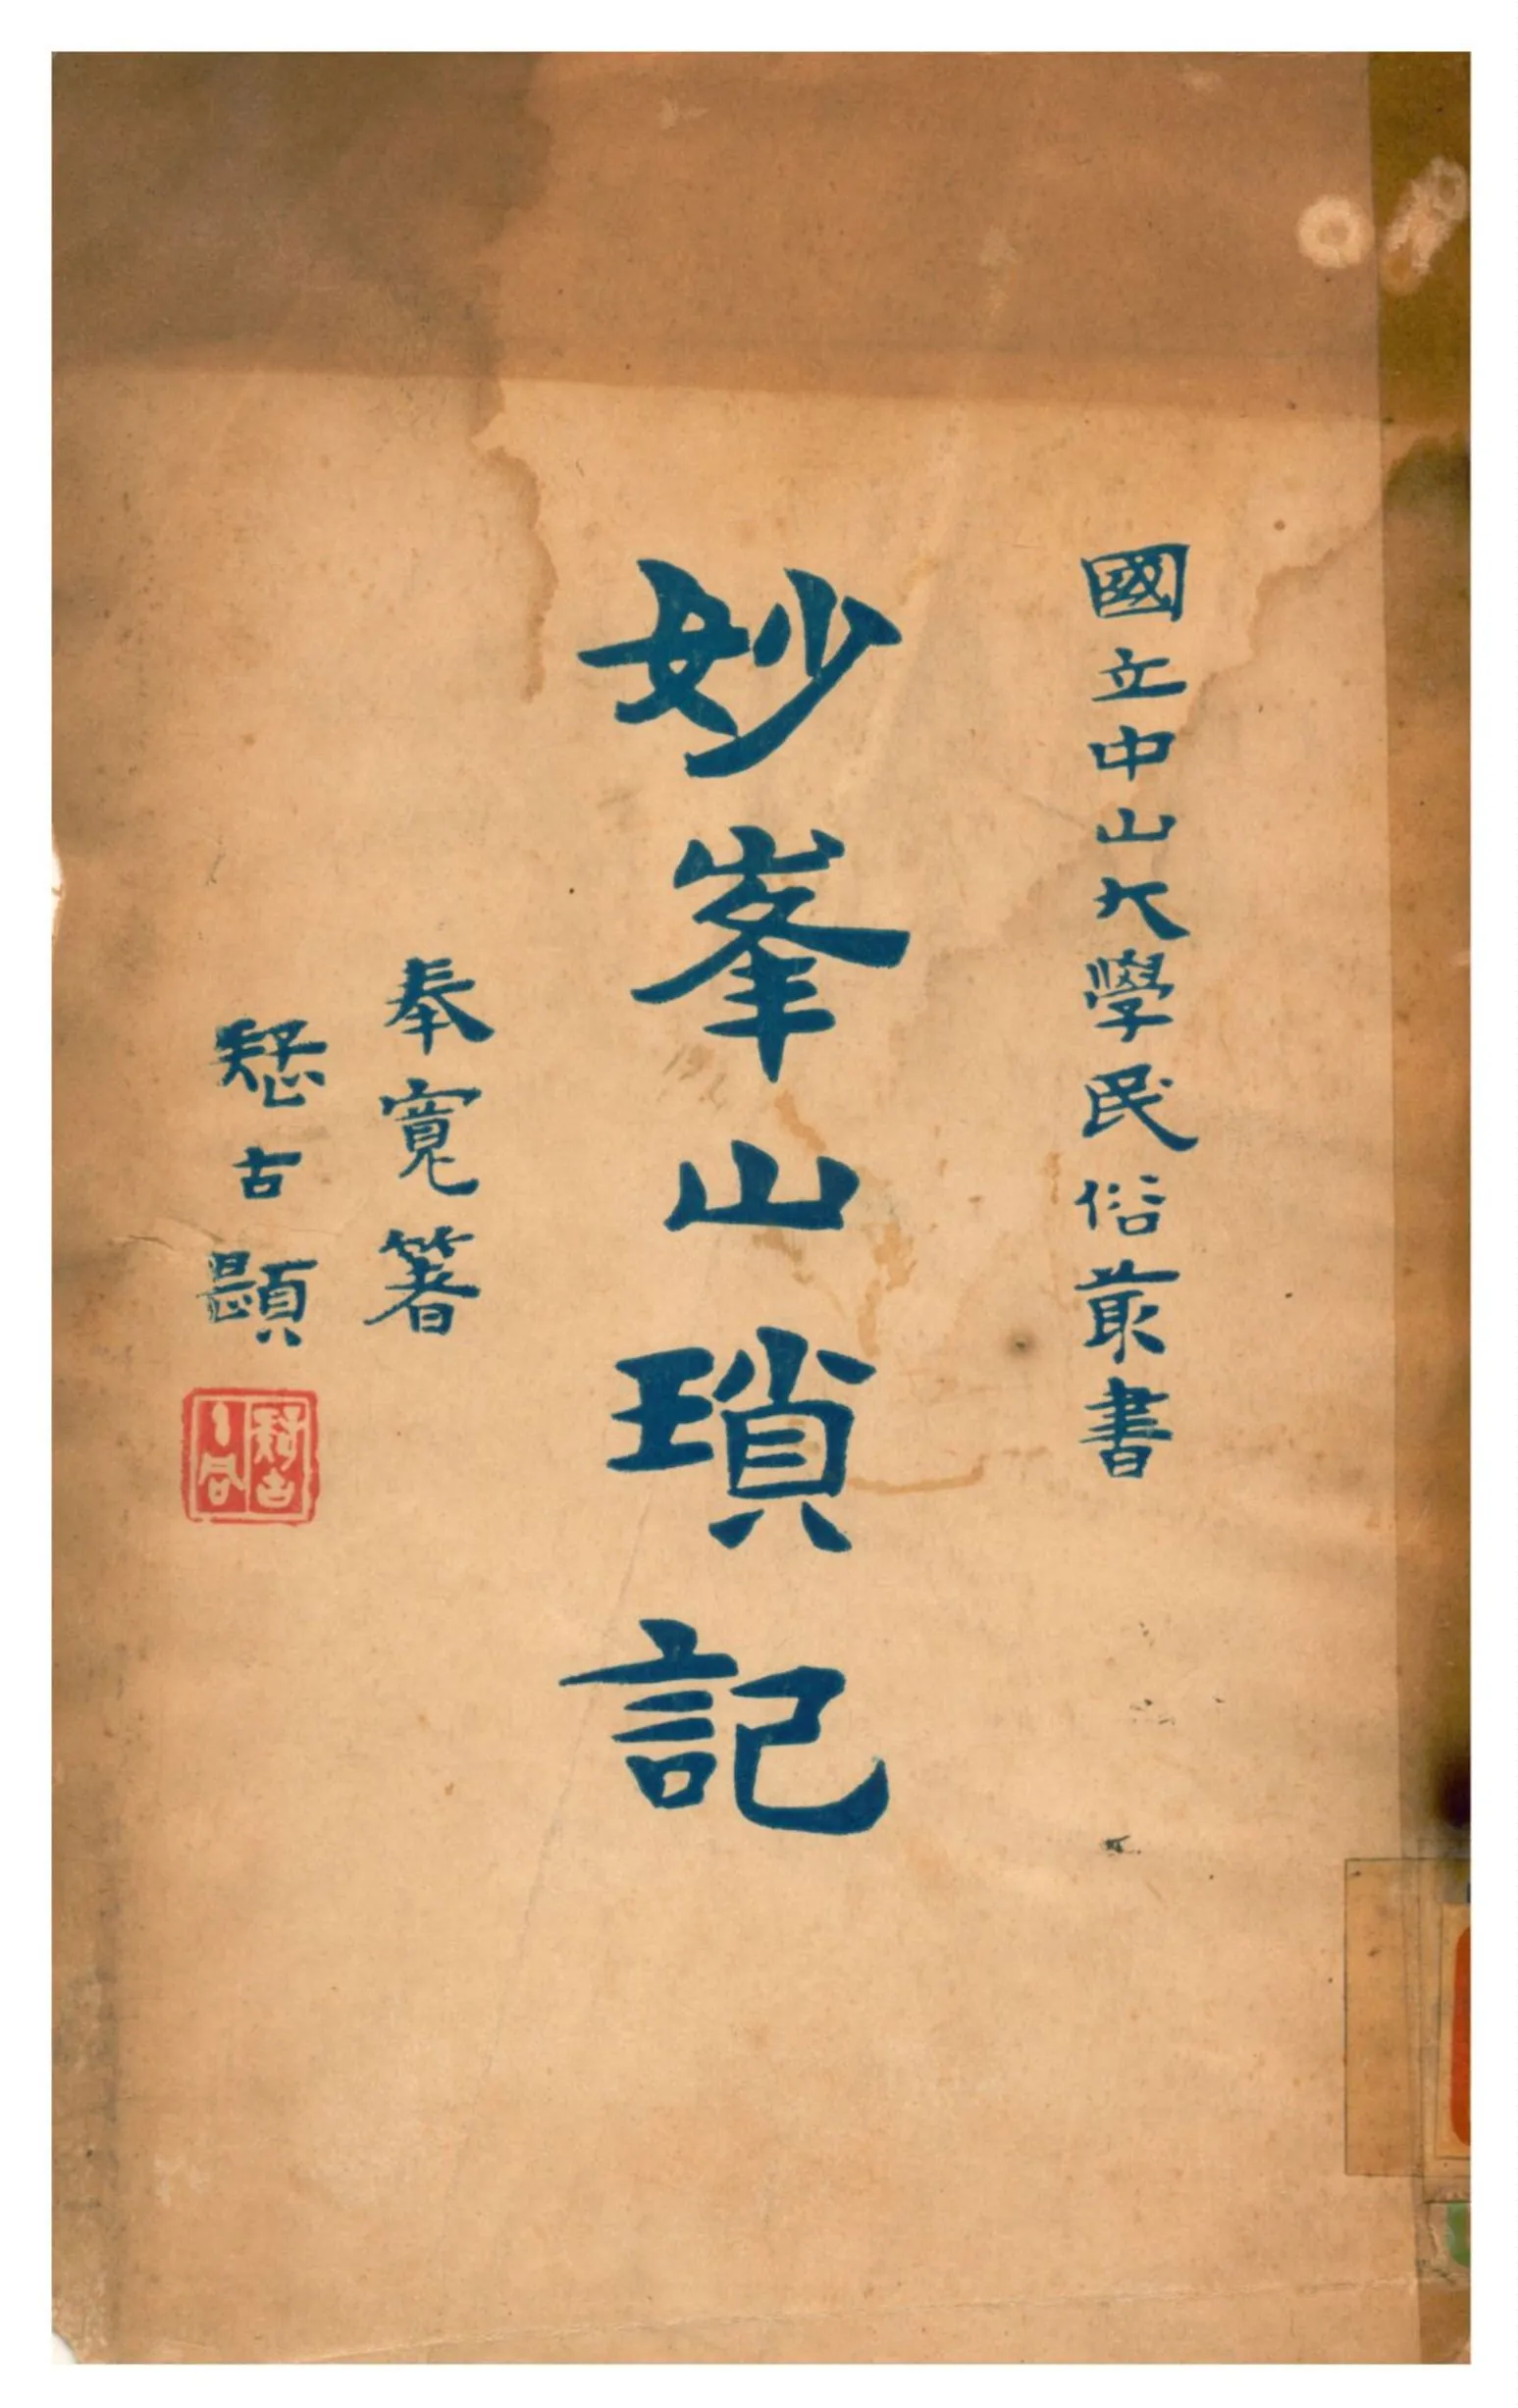 國立中山大學民俗叢書
妙峯山瑣記
奉寬箸
疑古題
疑古玄同